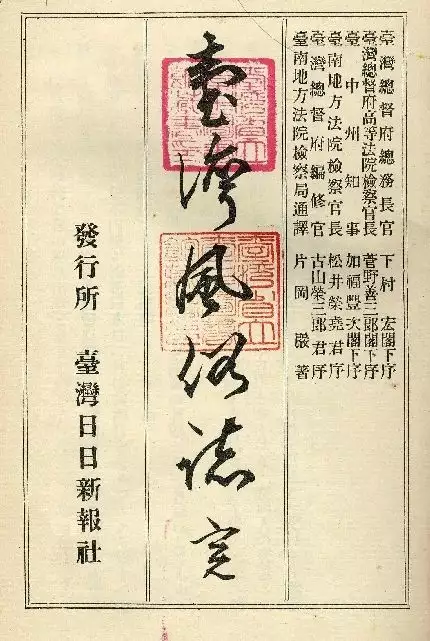 臺灣總督府總務長官 下村 宏閣下序
臺灣總督府高等法院檢察官長 菅野善三郎閣下序
臺中州知事 加福豐次閣下序
臺南地方法院檢察官長 松井榮堯君序
臺灣總督府編修官 古山榮三郎君序
臺南地方法院檢察局通譯 片岡巖著
臺灣風俗誌 完
發行所 臺灣日日新報社